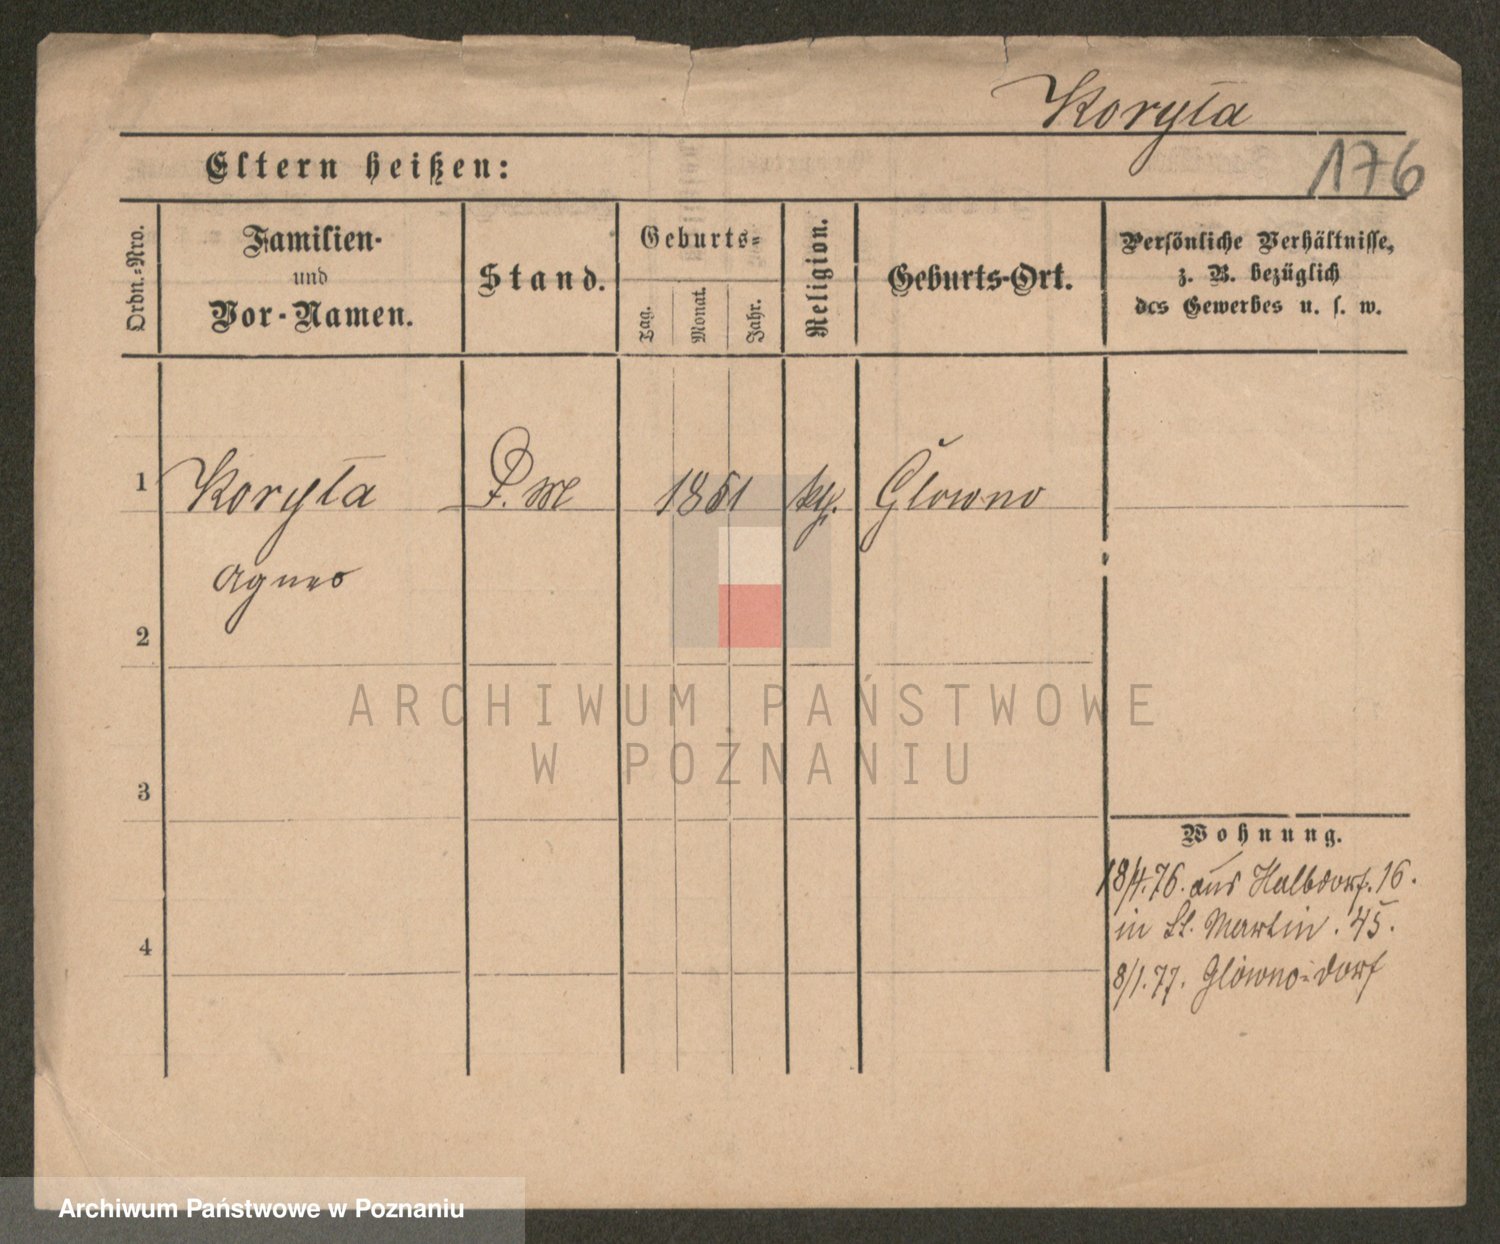 Koryta
176
Eltern heißen:
Ordn.-Nro.
Familien-
und
Vor-Namen.
Stand.
Geburts-
Tag.
Monat.
Jahr.
Religion.
Geburts-Ort.
Persönliche Verhältnisse,
z. B. bezüglich
des Gewerbes u. s. w.
1 Koryta D. M 1851 kth. Głowno
Agnes
2
3
4
Wohnung.
18/4.76. aus Halbdorf. 16.
in St. Martin. 45.
8/1.77. Glowno-dorf
ARCHIWUM PAŃSTWOWE
W POZNANIU
Archiwum Państwowe w Poznaniu